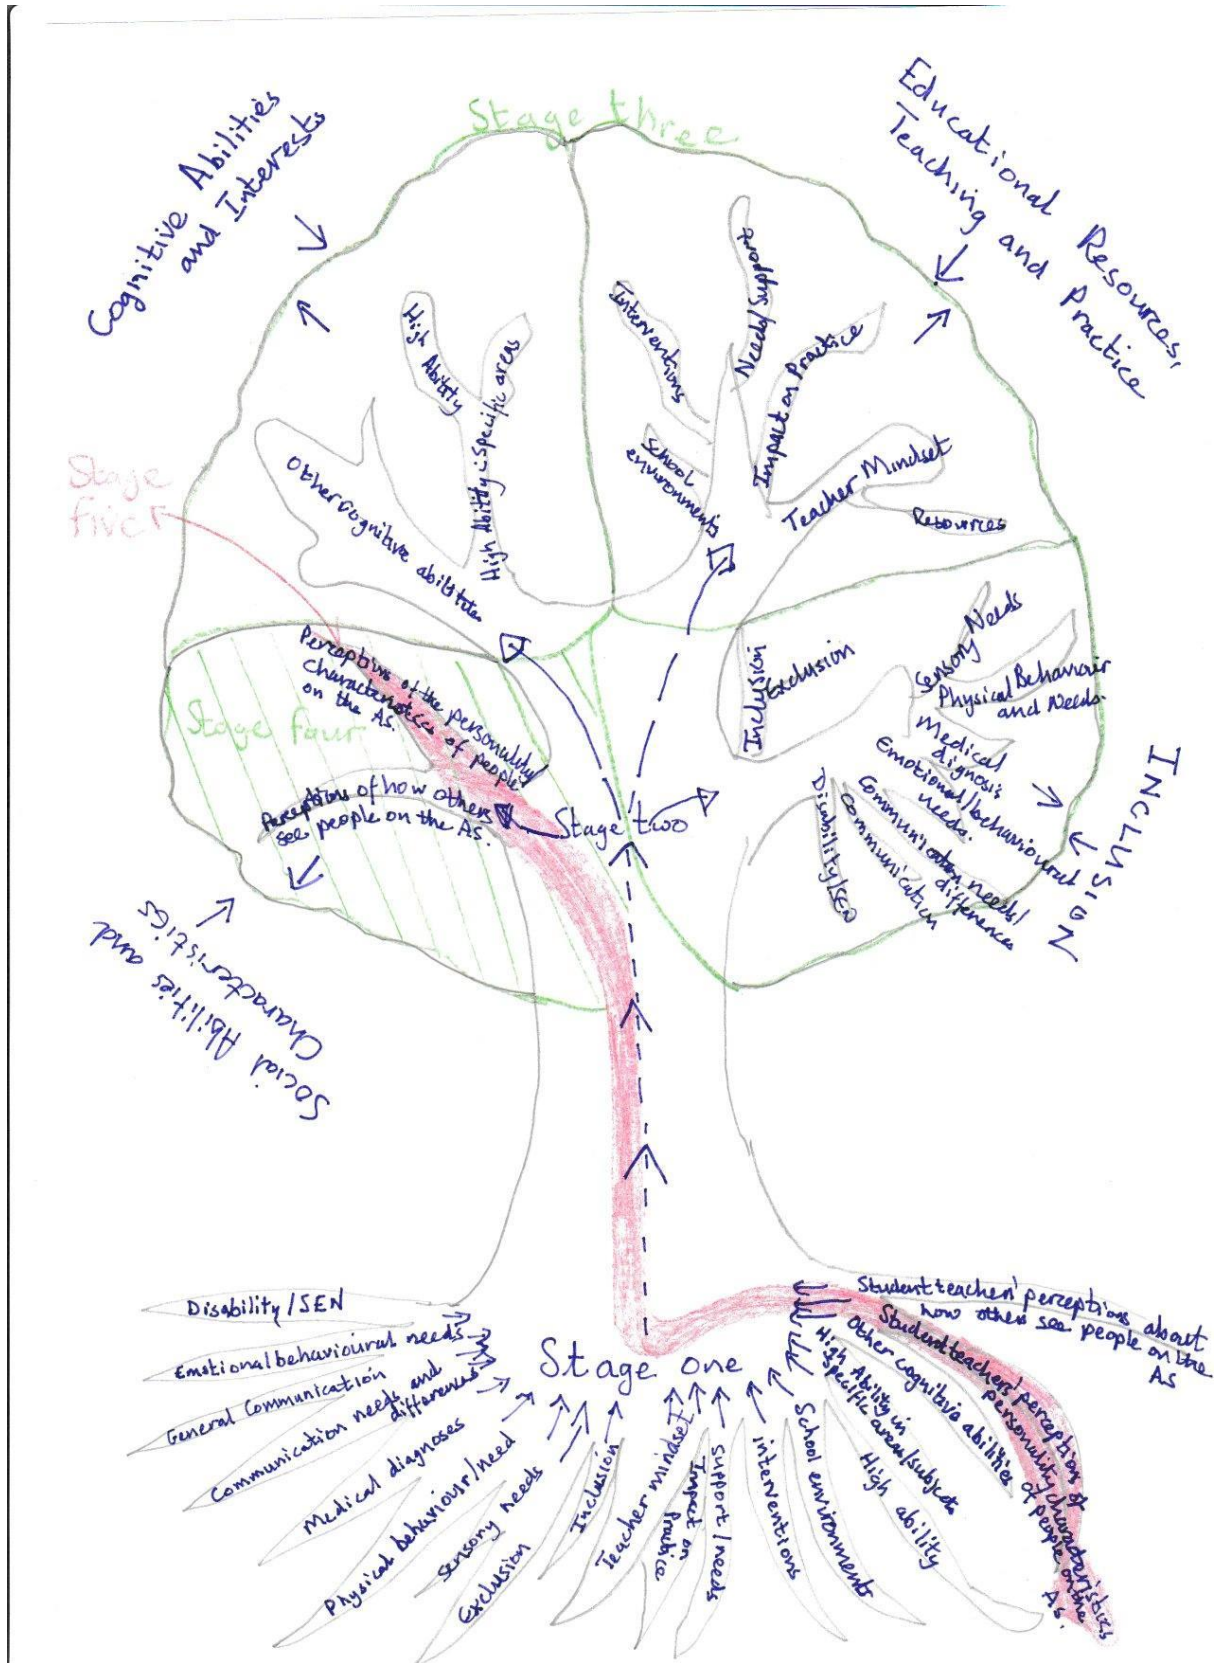 Stage three
Cognitive Abilities
and Interests
Educational Resources,
Teaching and Practice
High Ability
High Ability : Specific areas
Other cognitive abilities
Interventions
Needs/Support
Impact on Practice
School
environments
Teacher Mindset
Resources
Stage
five
Stage four
Perceptions of the personality
characteristics of people
on the AS.
Perceptions of how others
see people on the AS.
Stage two
Inclusion
Exclusion
Sensory Needs
Physical Behaviour
and Needs.
Medical
diagnosis
Emotional/behavioural
needs.
Communication needs/
differences
Communication
Disability/SEN
INCLUSION
Social Abilities and
Characteristics
Stage one
Disability/SEN
Emotional behavioural needs
General Communication
Communication needs and
differences
Medical diagnoses
Physical behaviour/need
Sensory needs
Exclusion
Inclusion
Teacher mindset
Impact on
Practice
support/needs
interventions
School environments
High ability
High Ability in
specific areas/subjects
Other cognitive abilities
Student teachers' perception of
personality characteristics
of people on the
As.
Student teachers' perceptions about
how others see people on the
AS